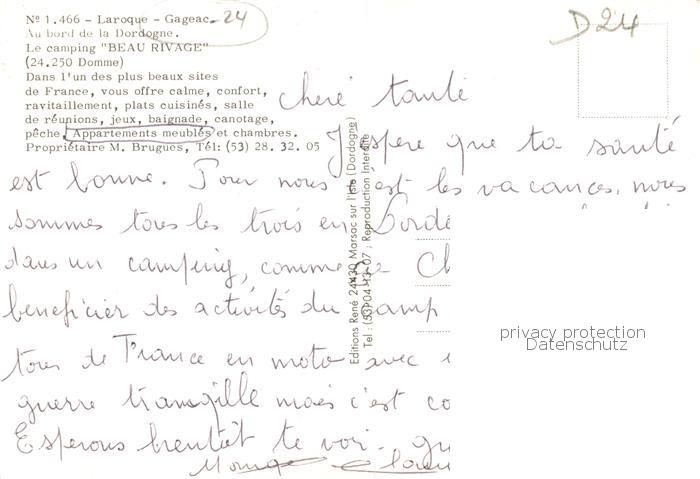 Nº 1.466 - Laroque - Gageac - 24
Au bord de la Dordogne.
Le camping "BEAU RIVAGE"
(24.250 Domme)
Dans l'un des plus beaux sites
de France, vous offre calme, confort,
ravitaillement, plats cuisinés, salle
de réunions, jeux, baignade, canotage,
pêche. Appartements meublés et chambres.
Propriétaire M. Brugues, Tél: (53) 28. 32. 05
D24
Editions René 24430 Marsac sur l'Isle (Dordogne)
Tél : (53) 04-13-07 ; Reproduction Interdite
chère tante
J'espère que ta santé
est bonne. Pour nous c'est les vacances, nous
sommes tous les trois en Dorde
dans un camping, comme
beneficier des activités du camp
tour de France en moto avec
guerre tranquille mais c'est co
Esperons bientôt te voir.
privacy protection
Datenschutz